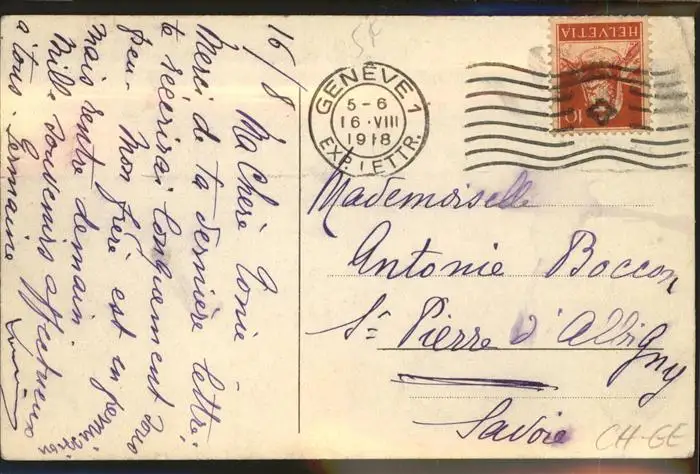 16/8 Ma Chère Tonie
Merci de ta dernière lettre.
te récrirai longuement sous
peu. Mon frère est en permission
mais rentre demain.
Mille souvenirs affectueux
à tous. Germaine
GENÈVE 1
5-6
16·VIII
1918
EXP. LETTR.
HELVETIA
10
Mademoiselle
Antonie Boccon
St Pierre d'Albigny
Savoie
CH-GE